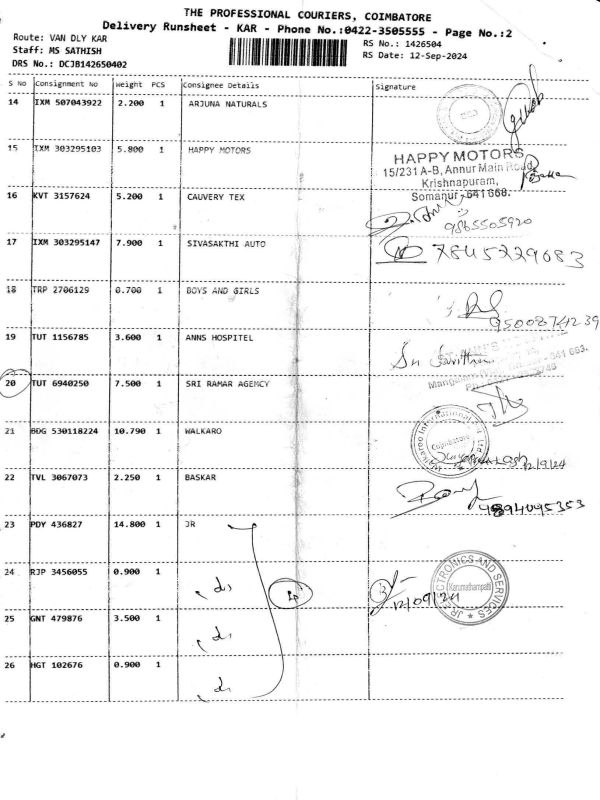 THE PROFESSIONAL COURIERS, COIMBATORE
Delivery Runsheet - KAR - Phone No.:0422-3505555 - Page No.:2
Route: VAN DLY KAR
RS No.: 1426504
Staff: MS SATHISH
RS Date: 12-Sep-2024
DRS No.: DCJB142650402
S No Consignment No Weight PCS Consignee Details Signature
14 IXM 507043922 2.200 1 ARJUNA NATURALS
15 IXM 303295103 5.800 1 HAPPY MOTORS
HAPPY MOTORS
15/231 A-B, Annur Main Road,
Krishnapuram,
Somanur - 641 668.
16 KVT 3157624 5.200 1 CAUVERY TEX
9865505920
17 IXM 303295147 7.900 1 SIVASAKTHI AUTO
7845229683
18 TRP 2706129 0.700 1 BOYS AND GIRLS
9500874239
19 TUT 1156785 3.600 1 ANNS HOSPITEL
20 TUT 6940250 7.500 1 SRI RAMAR AGEMCY
21 BDG 530118224 10.790 1 WALKARO
Walkaroo International Pvt. Ltd.
Coimbatore
12/9/24
22 TVL 3067073 2.250 1 BASKAR
9894095353
23 PDY 436827 14.800 1 JR
24 RJP 3456055 0.900 1
JR ELECTRONICS AND SERVICES
Karumathampatti
12/09/24
25 GNT 479876 3.500 1
26 HGT 102676 0.900 1